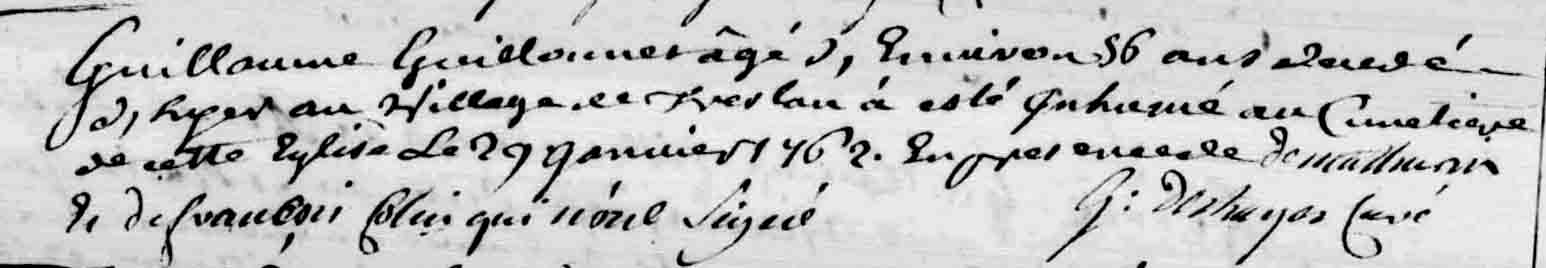 Guillaume Guillonnet âgé d, Environ 56 ans decedé
d, hyer au Village de Kerlan á esté Inhumé au Cimetiere
de cette Eglise Le 29 janvier 1762. En presence de de mathurin
et de francois Colin qui n'ont Signé G: Deshayes Curé